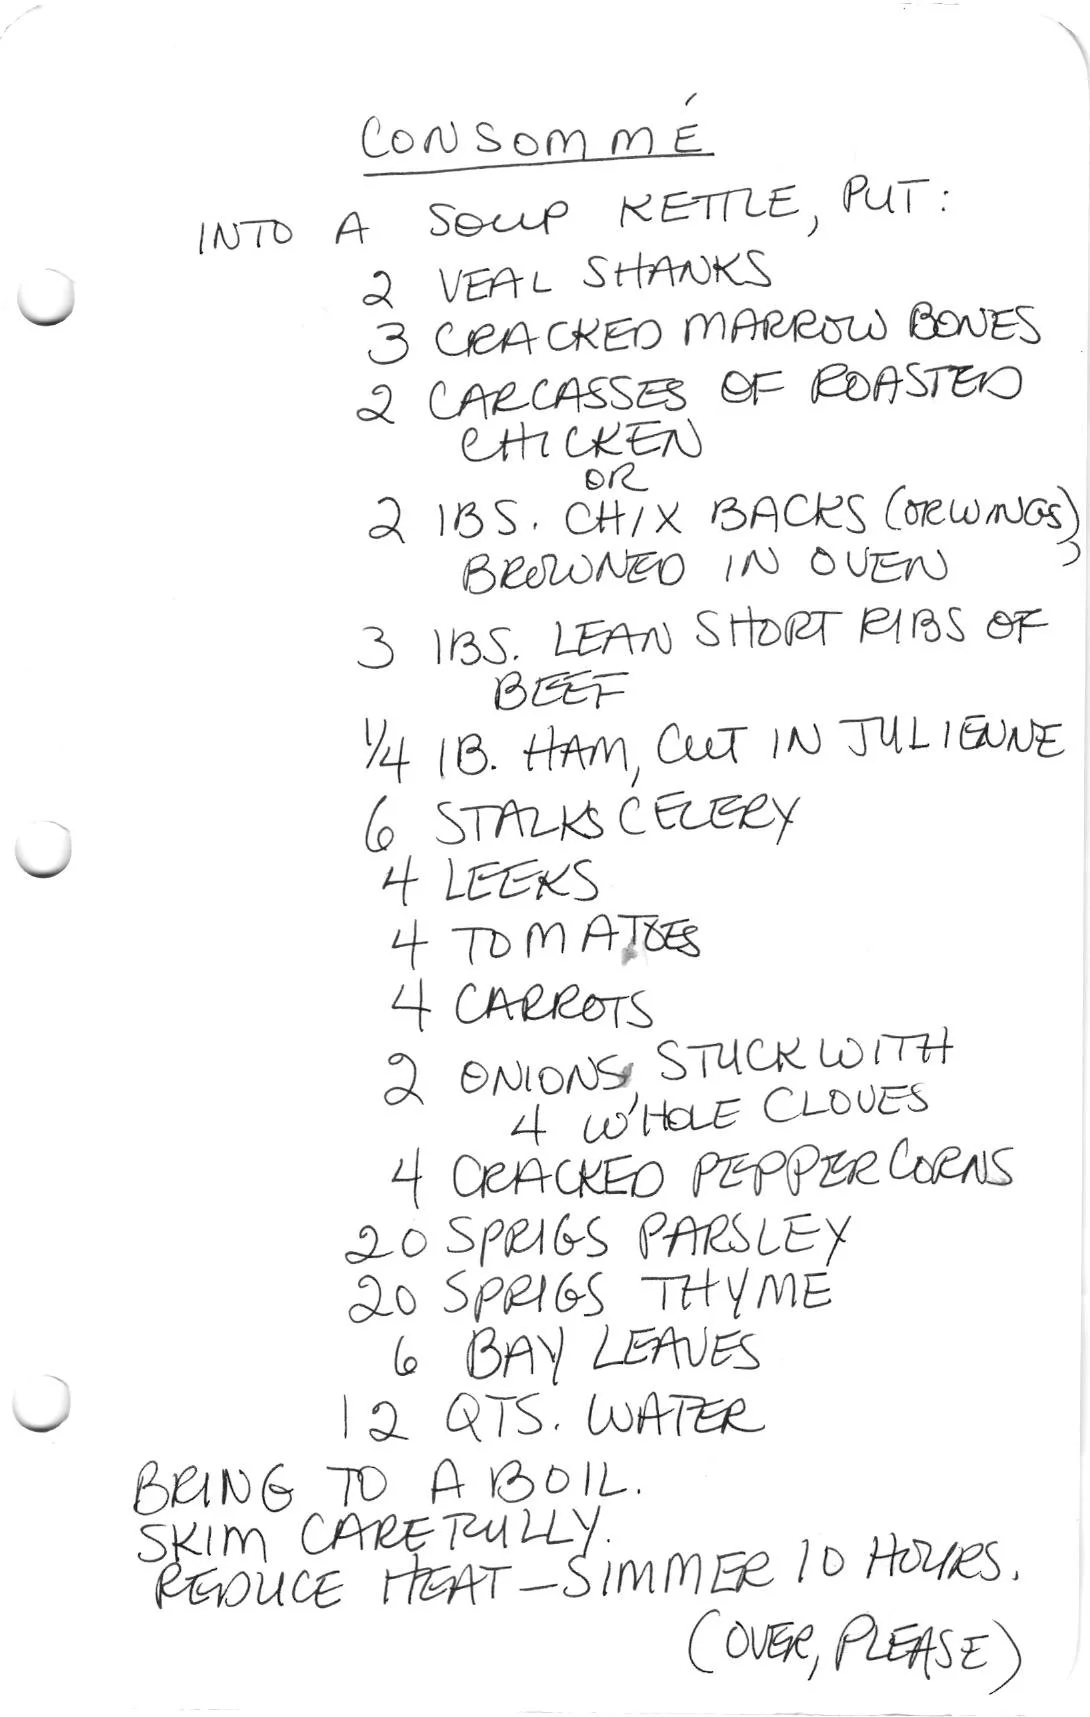 CONSOMMÉ
INTO A SOUP KETTLE, PUT:
2 VEAL SHANKS
3 CRACKED MARROW BONES
2 CARCASSES OF ROASTED
CHICKEN
OR
2 lBS. CHIX BACKS (OR WINGS),
BROWNED IN OVEN
3 lBS. LEAN SHORT RIBS OF
BEEF
1/4 lB. HAM, CUT IN JULIENNE
6 STALKS CELERY
4 LEEKS
4 TOMATOES
4 CARROTS
2 ONIONS, STUCK WITH
4 WHOLE CLOVES
4 CRACKED PEPPERCORNS
20 SPRIGS PARSLEY
20 SPRIGS THYME
6 BAY LEAVES
12 QTS. WATER
BRING TO A BOIL.
SKIM CAREFULLY.
REDUCE HEAT – SIMMER 10 HOURS.
(OVER, PLEASE)